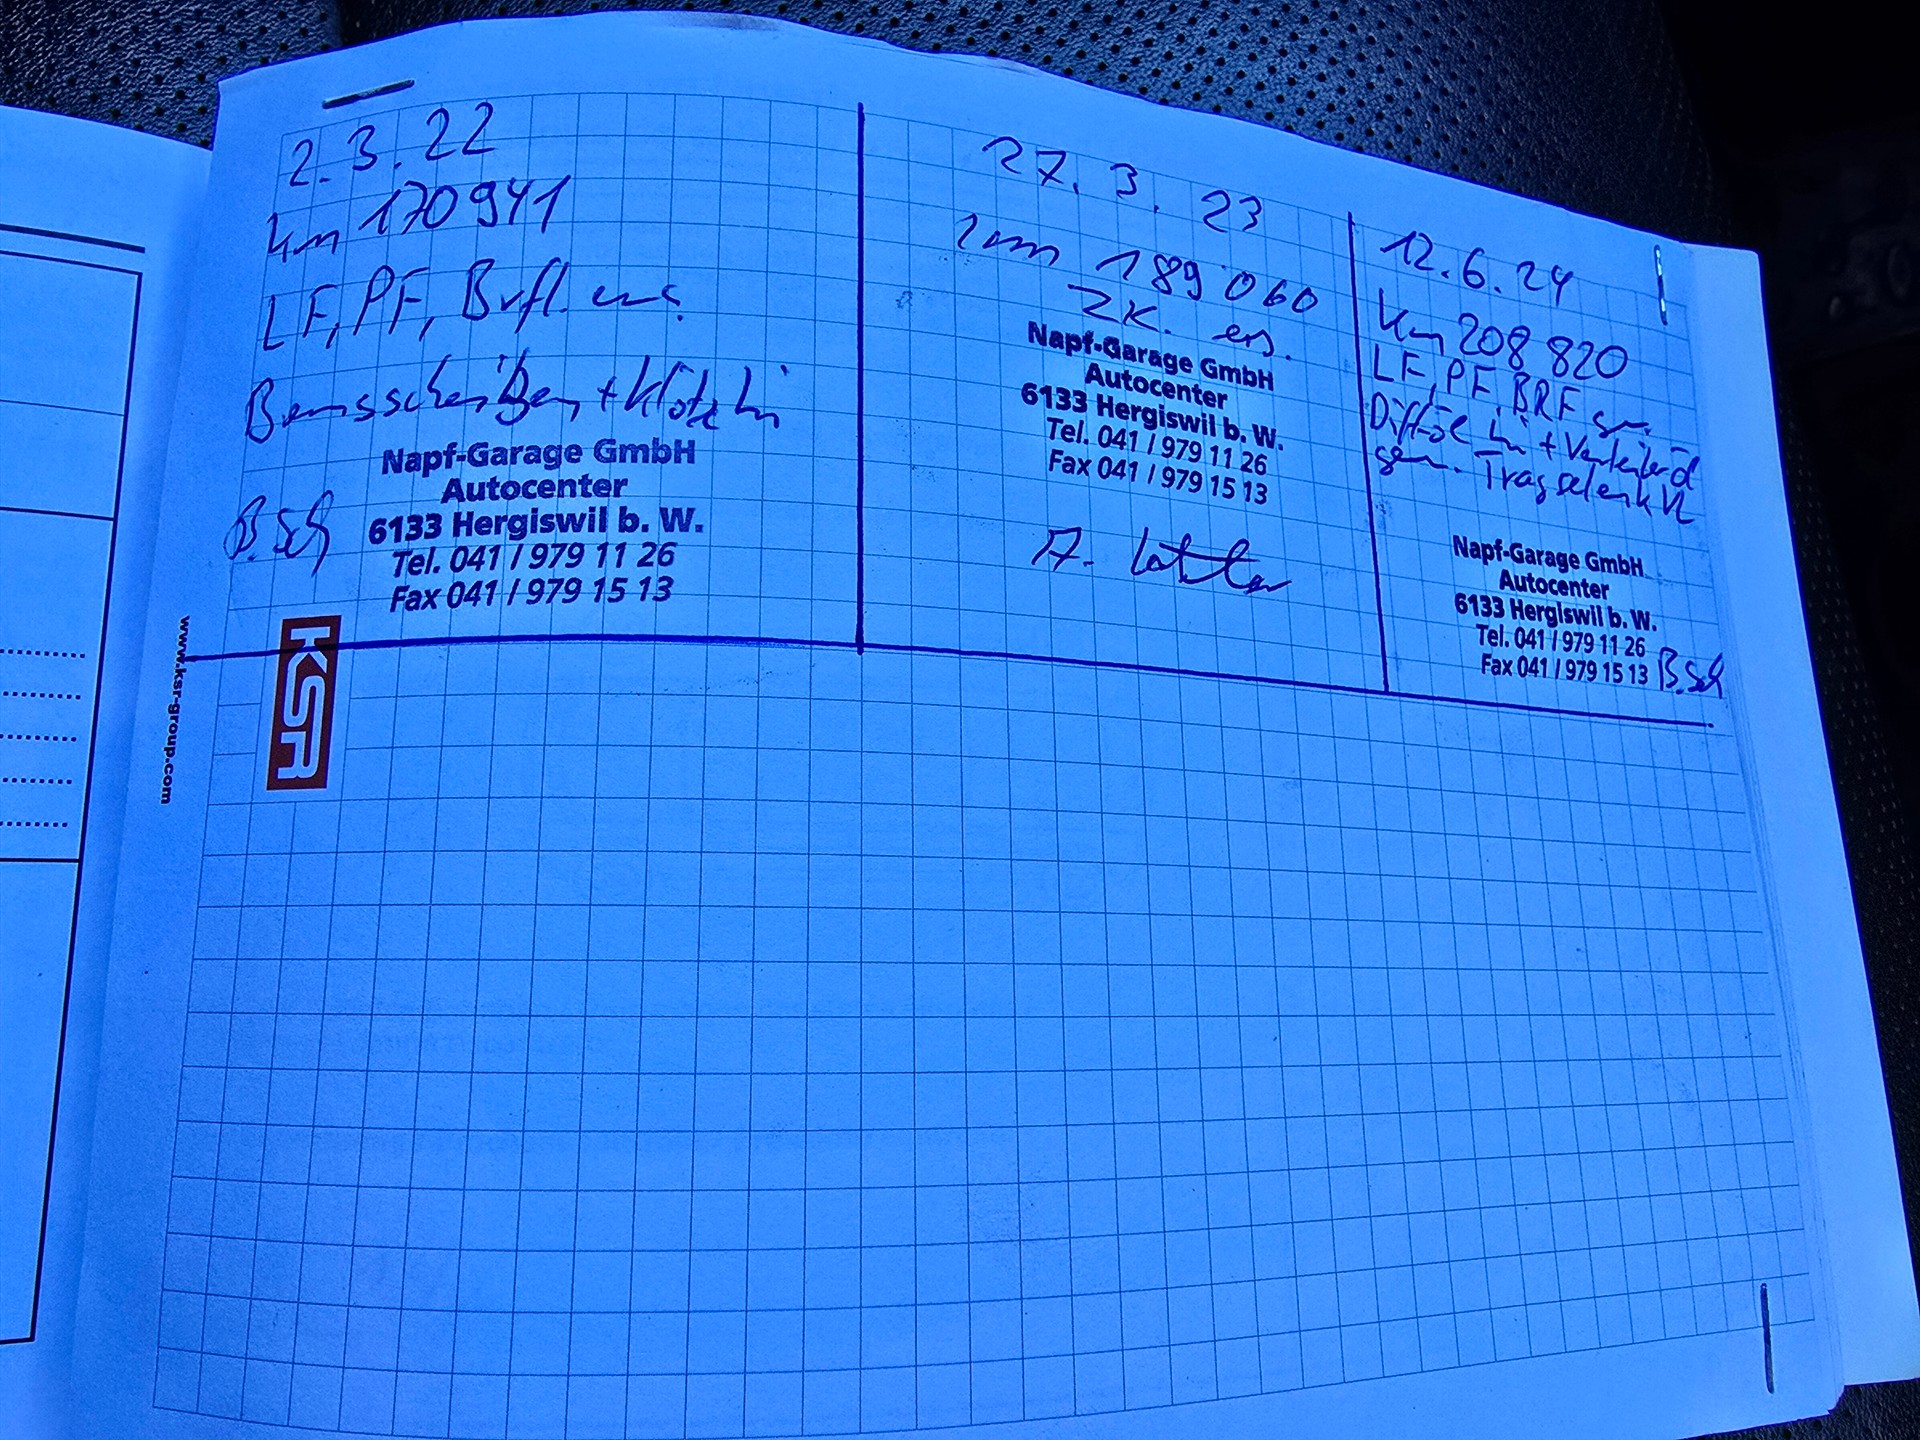 2.3.22
km 170941
LF, PF, Brfl. ers.
Bremsscheiben + Klötze hi
Napf-Garage GmbH
Autocenter
6133 Hergiswil b. W.
Tel. 041 / 979 11 26
Fax 041 / 979 15 13
B.Sch
27. 3. 23
km 189 060
ZK. ers.
Napf-Garage GmbH
Autocenter
6133 Hergiswil b. W.
Tel. 041 / 979 11 26
Fax 041 / 979 15 13
A.
12.6.24
km 208 820
LF, PF, BRF
Difföl hi + Verteileröl
Traggelenk VL
Napf-Garage GmbH
Autocenter
6133 Hergiswil b. W.
Tel. 041 / 979 11 26
Fax 041 / 979 15 13 B.Sch
KSR
www.ksr-group.com